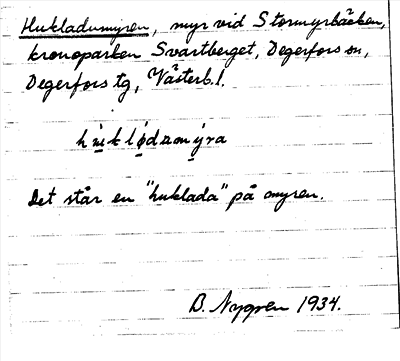 Hukladumyren, myr vid Stormyrbäcken,
kronoparken Svartberget, Degerfors sn,
Degerfors tg, Västerb. l.
Det står en "huklada" på myren.
B. Nygren 1934.